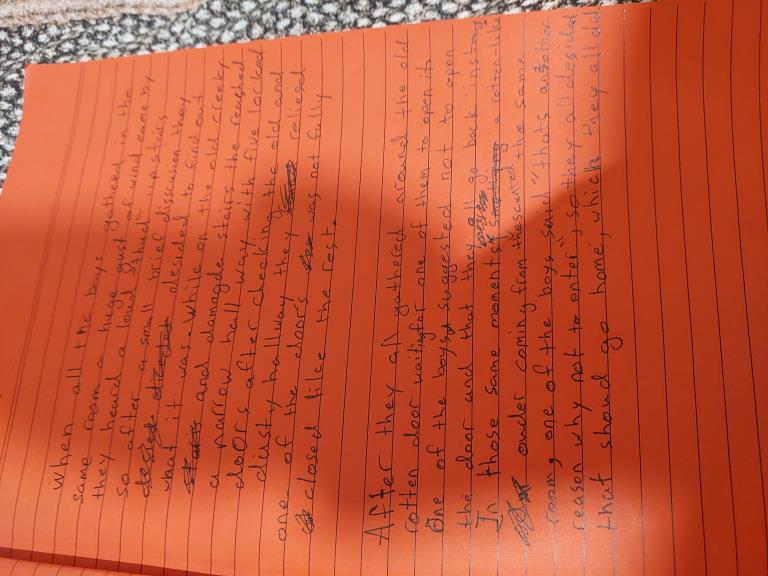 when all the boys gathered in the
same room a huge gust of wind came by
they heard a loud "thud" upstairs
so after a small brief disscusion they
decided to find out
what it was. While on the old creeky
and damagde stairs the reached
a narrow hall way with five locked
doors after checking the old and
dusty hallway they reliesed
one of the doors was not fully
closed like the rest.
After they all gathered around the old
rotten door waiting for one of them to open it
One of the boys suggested not to open
the door and that they go back
In those same moments a rotten-like
ouder coming from the same
room, one of the boys said "thats another
reason why not to enter", so they all decided
that should go home, which they all did